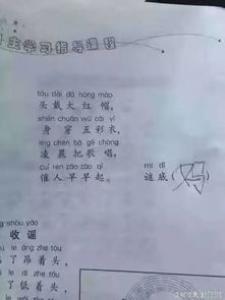 主学习指导课程
tóu dài dà hóng mào
头戴大红帽，
shēn chuān wǔ cǎi yī
身穿五彩衣，
líng chén bǎ gē chàng
凌晨把歌唱，
cuī rén zǎo zǎo qǐ
催人早早起。
mí dǐ
谜底
shōu yáo
收谣
le áng zhe tóu
了昂着头，
le dī zhe tóu
了低着头，